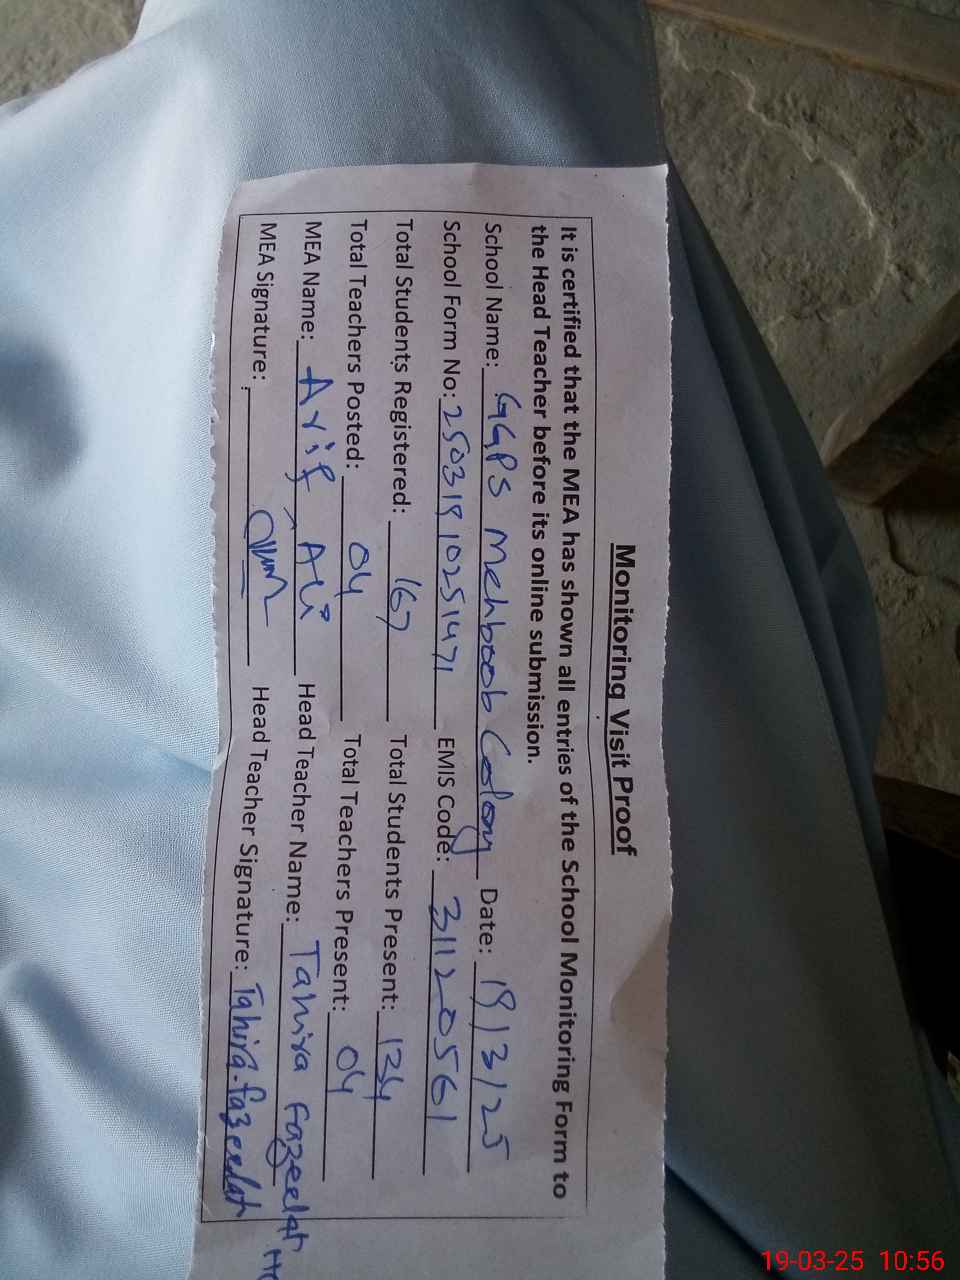 Monitoring Visit Proof
It is certified that the MEA has shown all entries of the School Monitoring Form to
the Head Teacher before its online submission.
School Name: GGPS Mehboob Colony Date: 19/3/25
School Form No: 25031910251471 EMIS Code: 31120561
Total Students Registered: 167 Total Students Present: 134
Total Teachers Posted: 04 Total Teachers Present: 04
MEA Name: Arif Ali Head Teacher Name: Tahira Fazeelat
MEA Signature: Head Teacher Signature: Tahira fazeelat
19-03-25 10:56